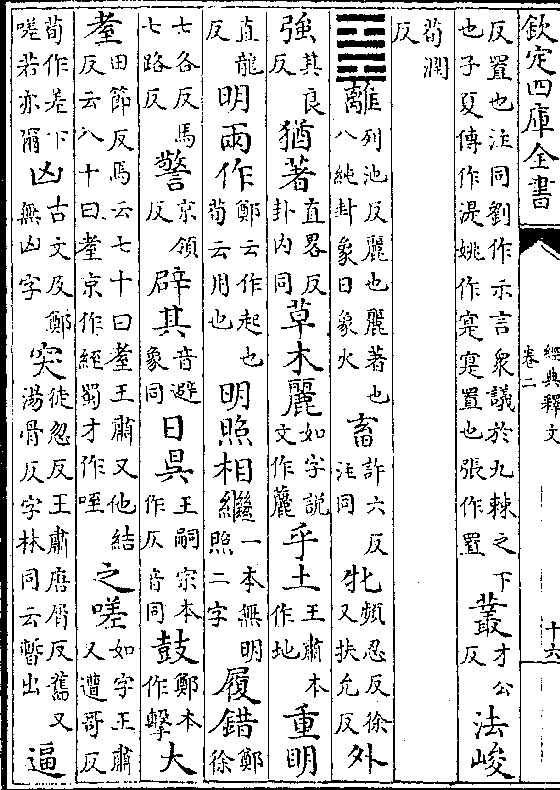 欽定四庫全書
經典釋文
卷二
十六
反置也注同劉作示言衆議於九棘之下也子夏傳作湜姚作寔寔置也張作置叢才公反法峻
荀潤反
䷝離列池反麗也麗著也八純卦象日象火畜許六反注同牝頻忍反徐又扶允反外
強其良反猶著直畧反卦内同草木麗如字說文作䕻乎土王肅本作地重明
直龍反明兩作鄭云作起也荀云用也明照相繼一本無明照二字履錯鄭徐
七各反馬七路反警京領反辟其音避象同日昗王嗣宗本作仄音同鼓鄭本作擊大
耋田節反馬云七十曰耋王肅又他結反云八十曰耋京作絰蜀才作咥之嗟如字王肅又遭哥反
荀作差下嗟若亦爾凶古文及鄭無凶字突徒忽反王肅唐屑反舊又湯骨反字林同云暫出逼